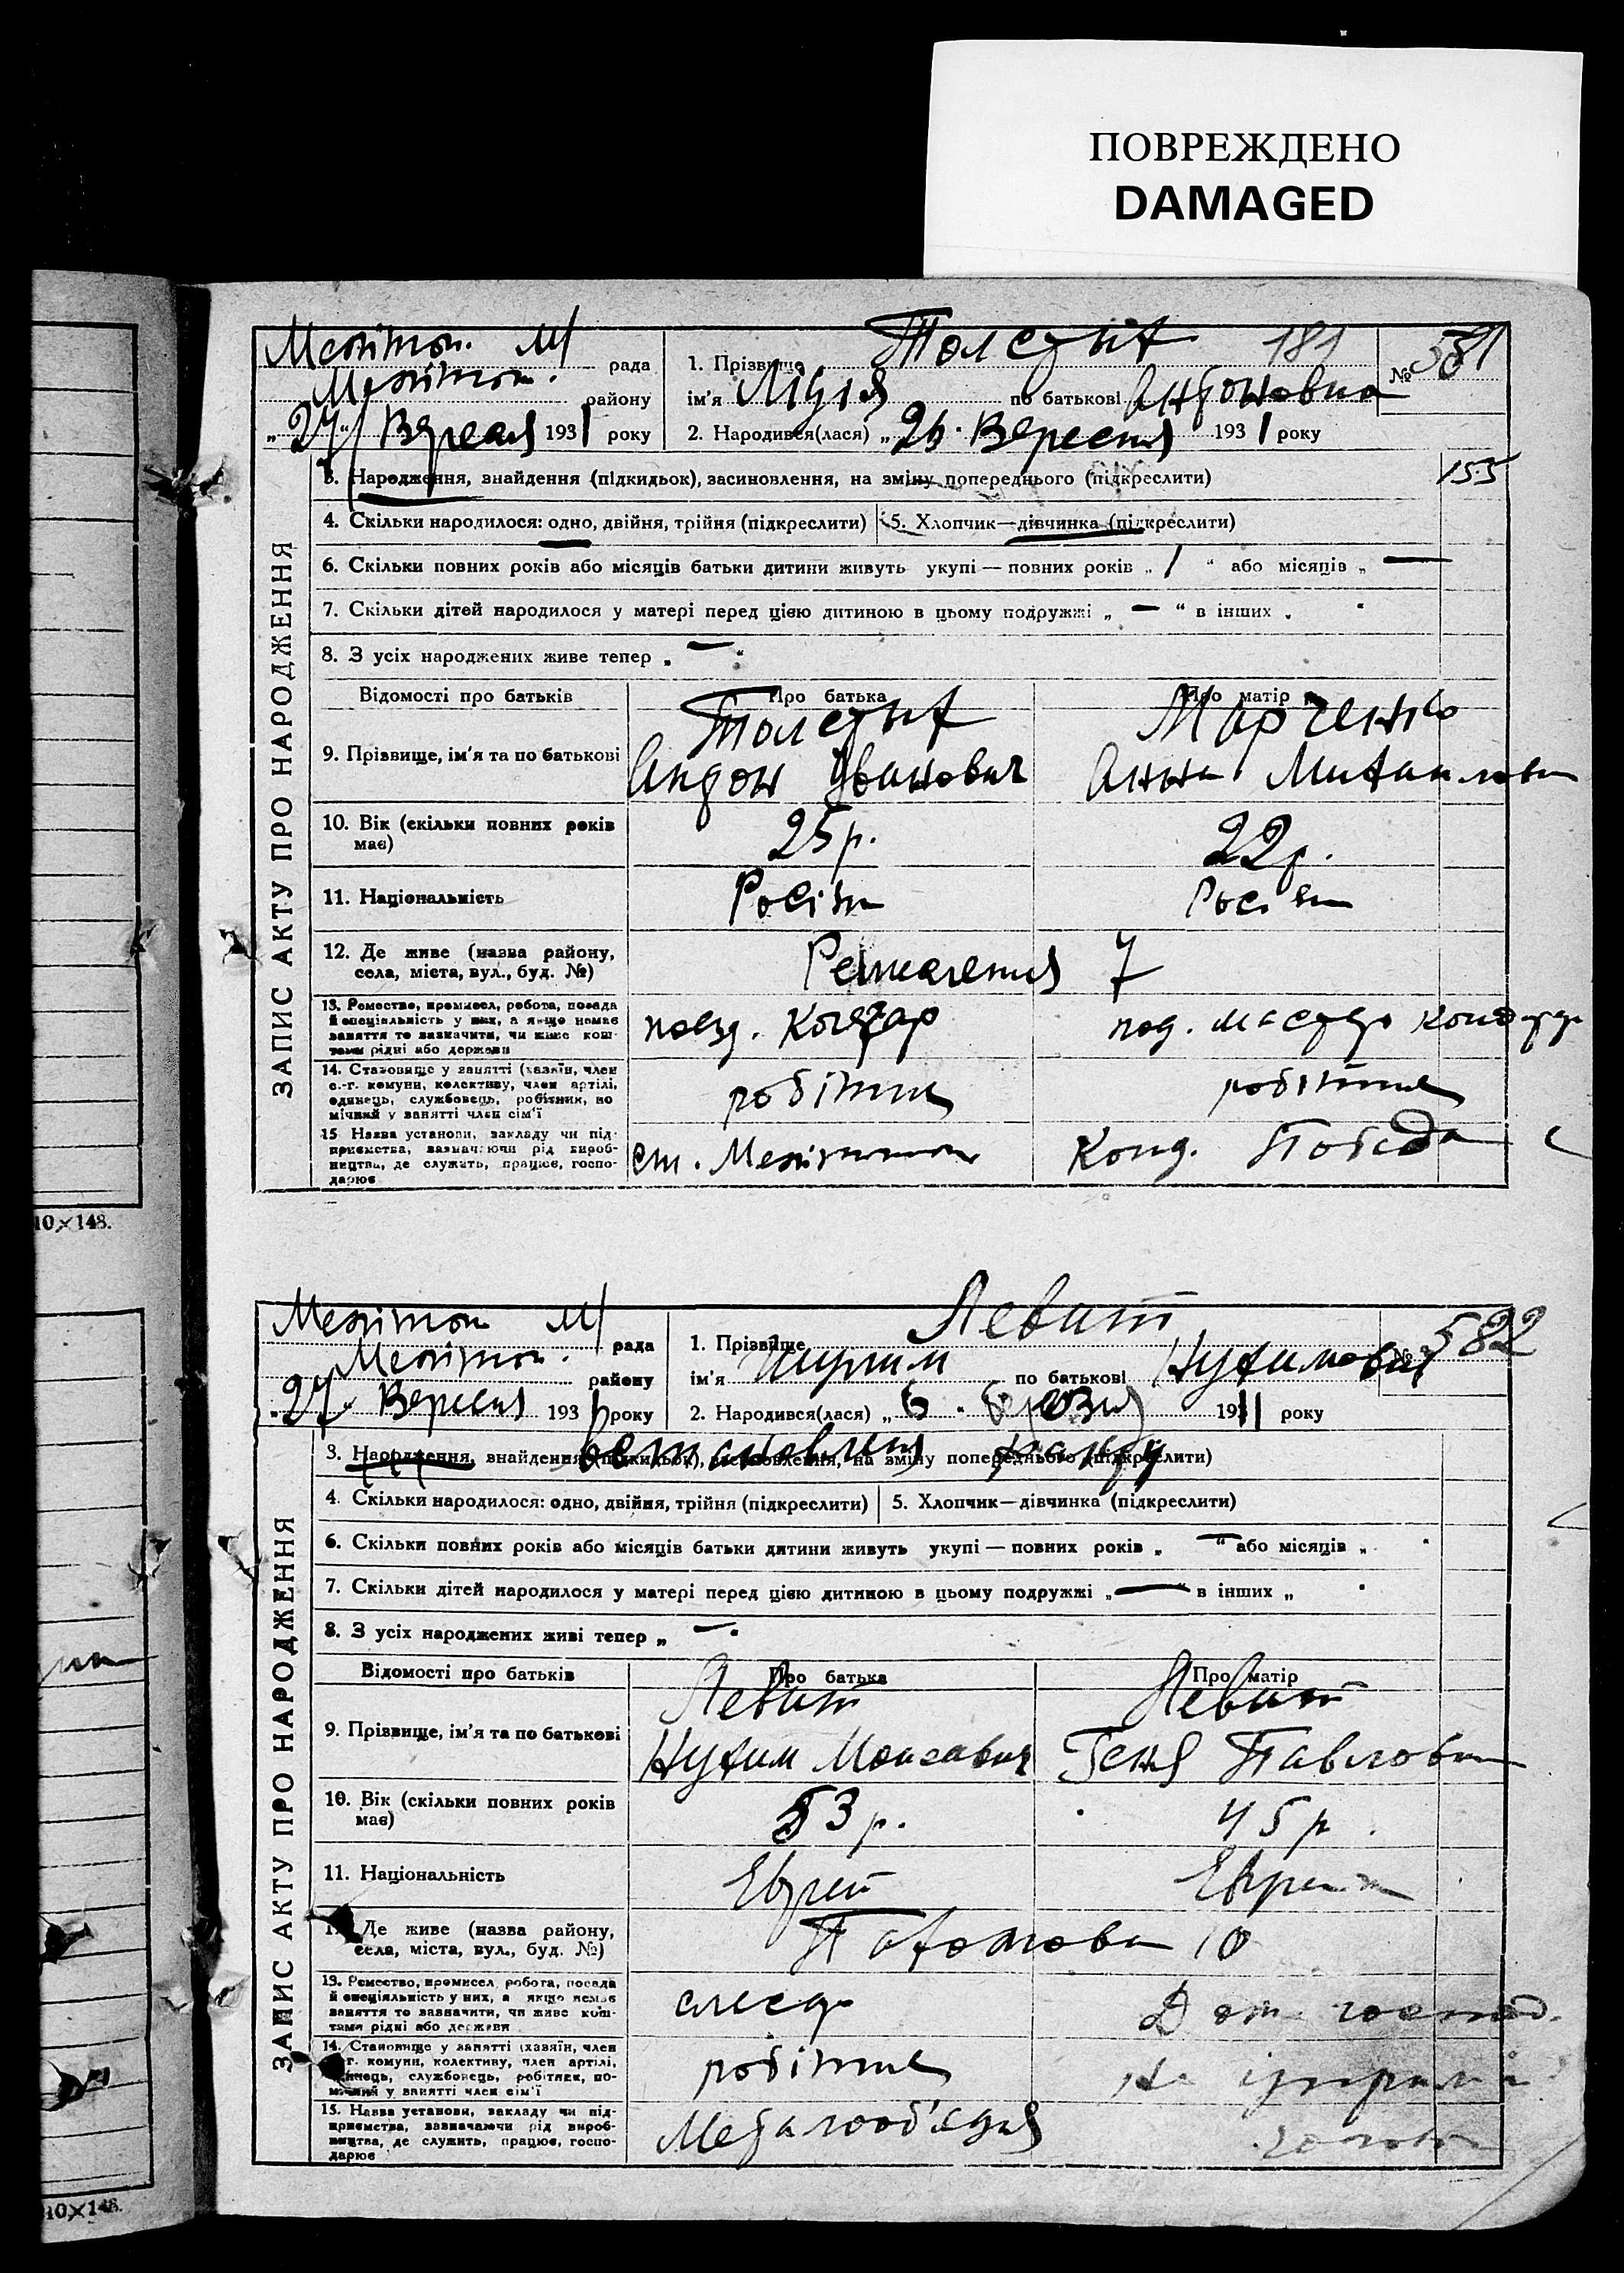 ПОВРЕЖДЕНО
DAMAGED
Меліт. М/ рада
Меліт. району
„27“ Вересня 1931 року
1. Прізвище Толстых 181
№ 581
ім'я Лідія по батькові Антоновна
2. Народився(лася) „26. Вересня 1931 року
3. Народження, знайдення (підкидьок), засиновлення, на зміну попереднього (підкреслити)
155
4. Скільки народилося: одно, двійня, трійня (підкреслити) 5. Хлопчик—дівчинка (підкреслити)
6. Скільки повних років або місяців батьки дитини живуть укупі — повних років „ 1 “ або місяців „ —
7. Скільки дітей народилося у матері перед цією дитиною в цьому подружжі „ — “ в інших „
8. З усіх народжених живе тепер „ — “
ЗАПИС АКТУ ПРО НАРОДЖЕННЯ
Відомості про батьків Про батька Про матір
9. Прізвище, ім'я та по батькові
Толстых
Антон Иванович
Марченко
Анна Михаиловн
10. Вік (скільки повних років має) 25 р. 22 р.
11. Національність Росіян Росіян
12. Де живе (назва району, села, міста, вул., буд. №) 7
13. Ремество, промисел, робота, посада й спеціальність у них, а якщо немає заняття то визначити, чи живе коштами рідні або держави
поезд.
под.
14. Становище у занятті (хазяїн, член с.-г. комуни, колективу, член артілі, одинець, службовець, робітник, помічний у занятті член сім'ї
робітник робітниця
15. Назва установи, закладу чи підприємства, зазначаючи рід виробництва, де служить, працює, господарює
ст. Мелітополь Конд. Победа
10×148.
Мелітоп М/ рада
Мелітоп. району
„27“ Вересня 1931 року
1. Прізвище Левит
№ 582
ім'я по батькові Нухимович
2. Народився(лася) „6. березня 1911 року
3. Народження, знайдення (підкидьок), засиновлення, на зміну попереднього (підкреслити)
встановлення
4. Скільки народилося: одно, двійня, трійня (підкреслити) 5. Хлопчик—дівчинка (підкреслити)
6. Скільки повних років або місяців батьки дитини живуть укупі — повних років „ — “ або місяців „
7. Скільки дітей народилося у матері перед цією дитиною в цьому подружжі „ — “ в інших „
8. З усіх народжених живі тепер „ —
ЗАПИС АКТУ ПРО НАРОДЖЕННЯ
Відомості про батьків Про батька Про матір
9. Прізвище, ім'я та по батькові
Левит
Нухим Моисавич
Левит
Геня Павловн
10. Вік (скільки повних років має) 53 р. 45 р.
11. Національність Еврей Еврейк
12. Де живе (назва району, села, міста, вул., буд. №) 10
13. Ремество, промисел, робота, посада й спеціальність у них, а якщо немає заняття то зазначити, чи живе коштами рідні або держави
слесар Дом. господ.
14. Становище у занятті (хазяїн, член с.-г. комуни, колективу, член артілі, одинець, службовець, робітник, помічний у занятті член сім'ї
робітник На
15. Назва установи, закладу чи підприємства, зазначаючи рід виробництва, де служить, працює, господарює
10×148.